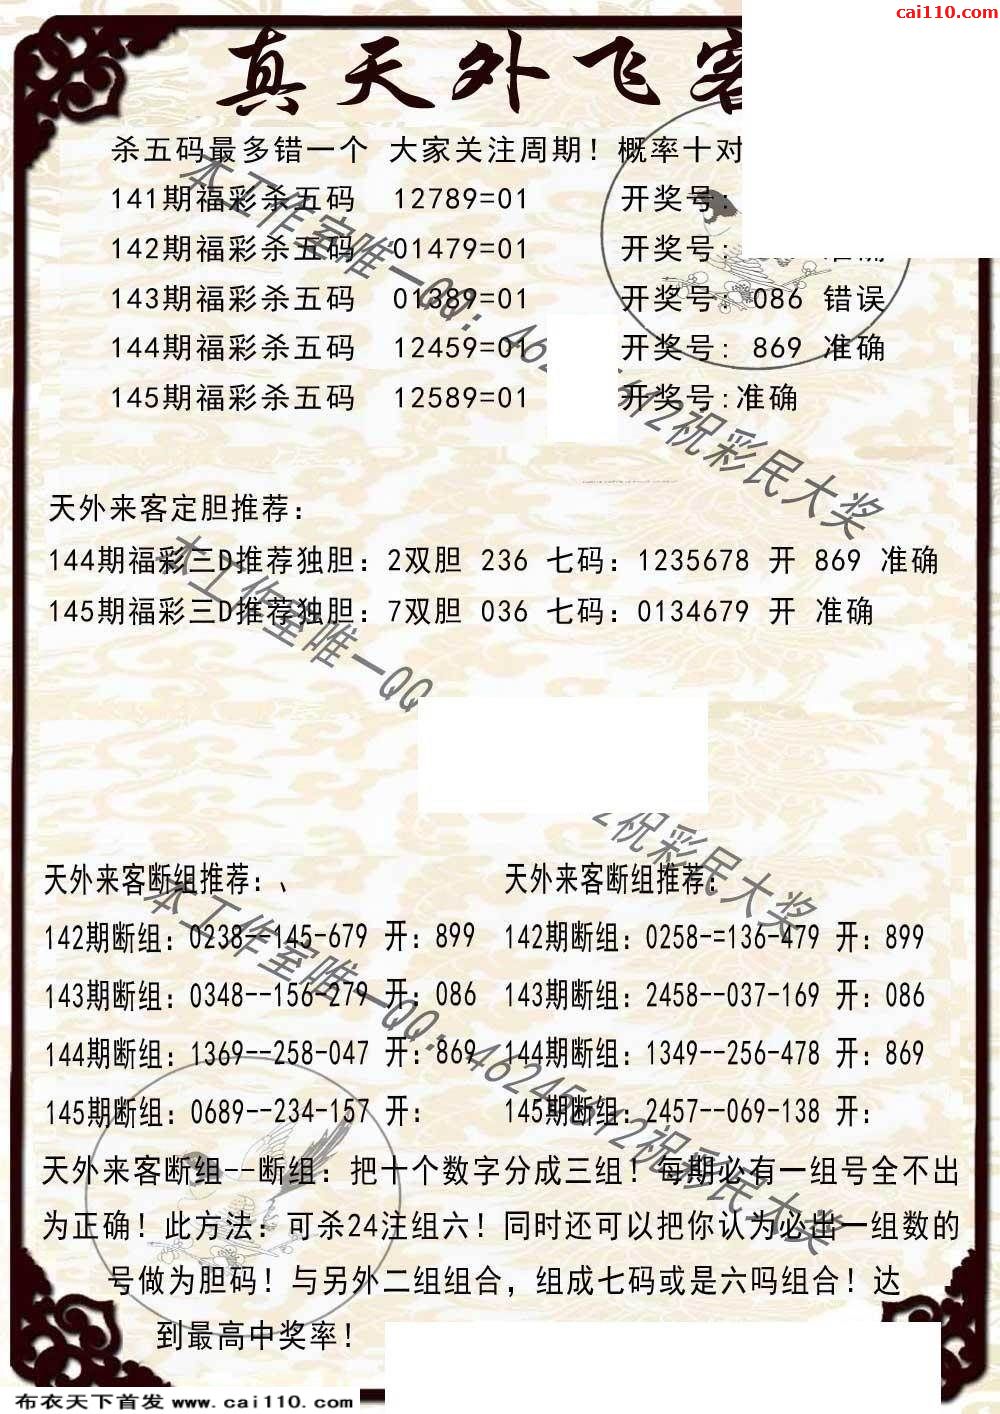 cai110.com
真天外飞客
杀五码最多错一个 大家关注周期！概率十对
141期福彩杀五码 12789=01 开奖号:
142期福彩杀五码 01479=01 开奖号: 准确
143期福彩杀五码 01389=01 开奖号: 086 错误
144期福彩杀五码 12459=01 开奖号: 869 准确
145期福彩杀五码 12589=01 开奖号:准确
本工作室唯一QQ: 46 612祝彩民大奖
天外来客定胆推荐：
144期福彩三D推荐独胆：2双胆 236 七码：1235678 开 869 准确
145期福彩三D推荐独胆：7双胆 036 七码：0134679 开 准确
本工作室唯一QQ 2祝彩民大奖
天外来客断组推荐：、
142期断组：0238--145-679 开：899
143期断组：0348--156-279 开：086
144期断组：1369--258-047 开：869
145期断组：0689--234-157 开：
天外来客断组推荐：
142期断组：0258-=136-479 开：899
143期断组：2458--037-169 开：086
144期断组：1349--256-478 开：869
145期断组：2457--069-138 开：
本工作室唯一QQ: 46245612祝彩民大奖
天外来客断组--断组：把十个数字分成三组！每期必有一组号全不出
为正确！此方法：可杀24注组六！同时还可以把你认为必出一组数的
号做为胆码！与另外二组组合，组成七码或是六吗组合！达
到最高中奖率！
布衣天下首发 www.cai110.com